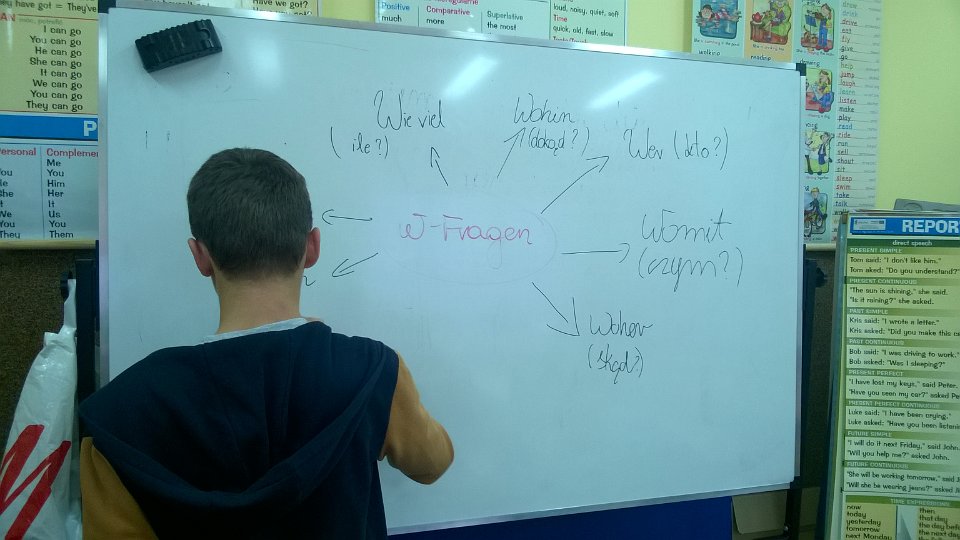 I can go
You can go
He can go
She can go
It can go
We can go
You can go
They can go
Complemen
Me
You
Him
Her
It
Us
You
Them
Positive
much
Comparative
more
Superlative
the most
loud, noisy, quiet, soft
Time
quick, old, fast, slow
Wie viel
(ile?)
Wohin
(dokąd?)
Wer (kto?)
W-Fragen
Womit
(czym?)
Woher
(skąd?)
walking
reading
drink
drive
eat
fly
give
go
help
jump
laugh
learn
listen
make
play
read
ride
run
sell
shout
sit
sleep
swim
take
talk
REPOR
direct speech
PRESENT SIMPLE
Tom said: "I don't like him."
Tom asked: "Do you understand?"
PRESENT CONTINUOUS
"The sun is shining," she said.
"Is it raining?" she asked.
PAST SIMPLE
Kris said: "I wrote a letter."
Kris asked: "Did you make this ca
PAST CONTINUOUS
Bob said: "I was driving to work."
Bob asked: "Was I sleeping?"
PRESENT PERFECT
"I have lost my keys," said Peter.
"Have you seen my car?" asked Pe
PRESENT PERFECT CONTINUOUS
Luke said: "I have been crying."
Luke asked: "Have you been listenin
FUTURE SIMPLE
"I will do it next Friday," said John.
"Will you help me?" asked John.
FUTURE CONTINUOUS
"She will be working tomorrow," said J
"Will she be wearing jeans?" asked
TIME EXPRESSIONS
now
today
yesterday
tomorrow
next Monday
then
that day
the day befo
the next da